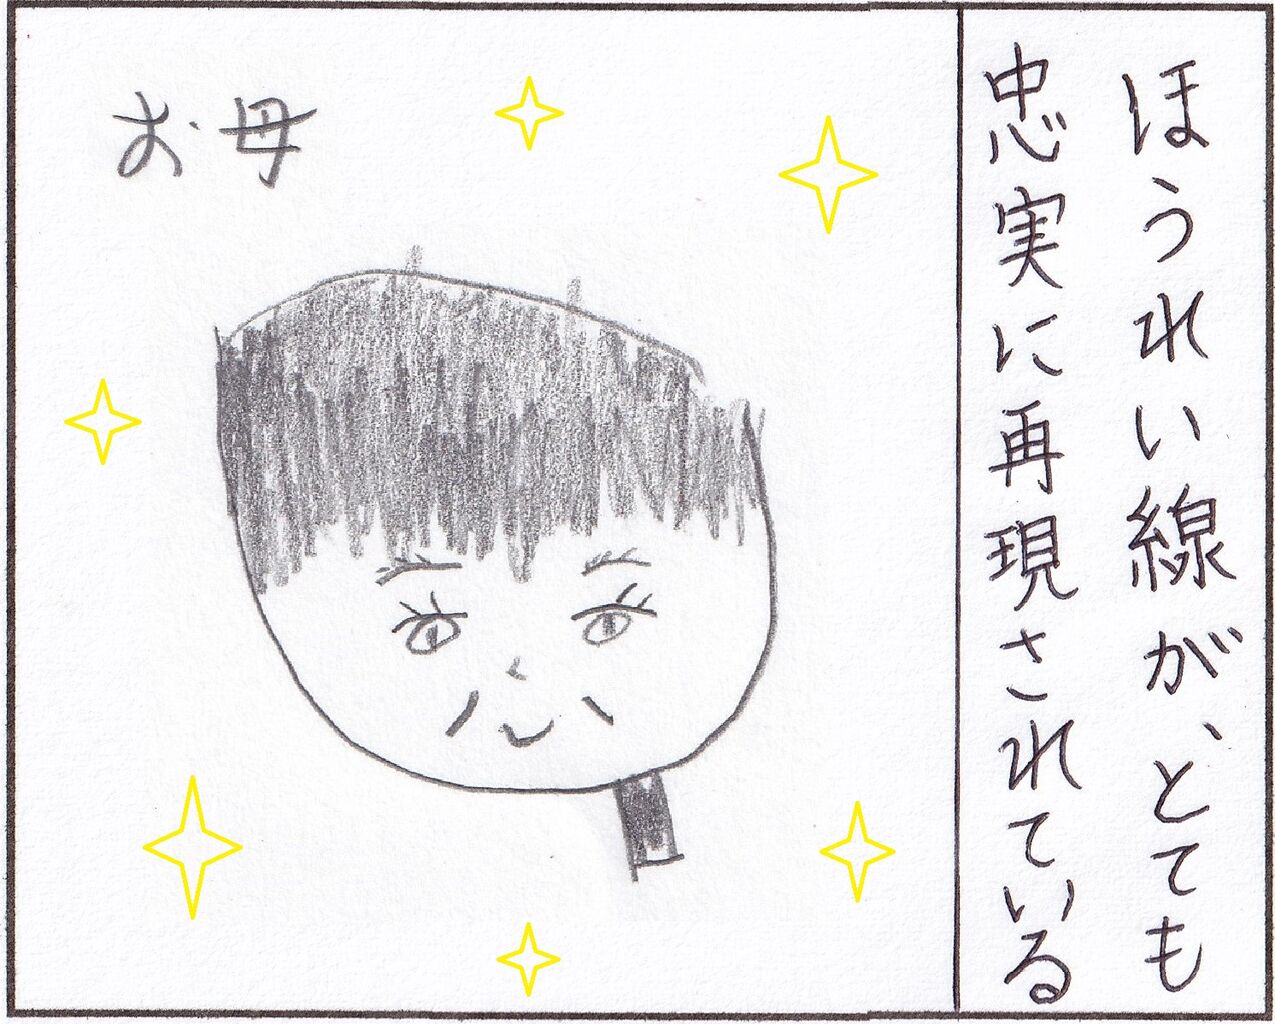 ほうれい線が、とても
忠実に再現されている
お母